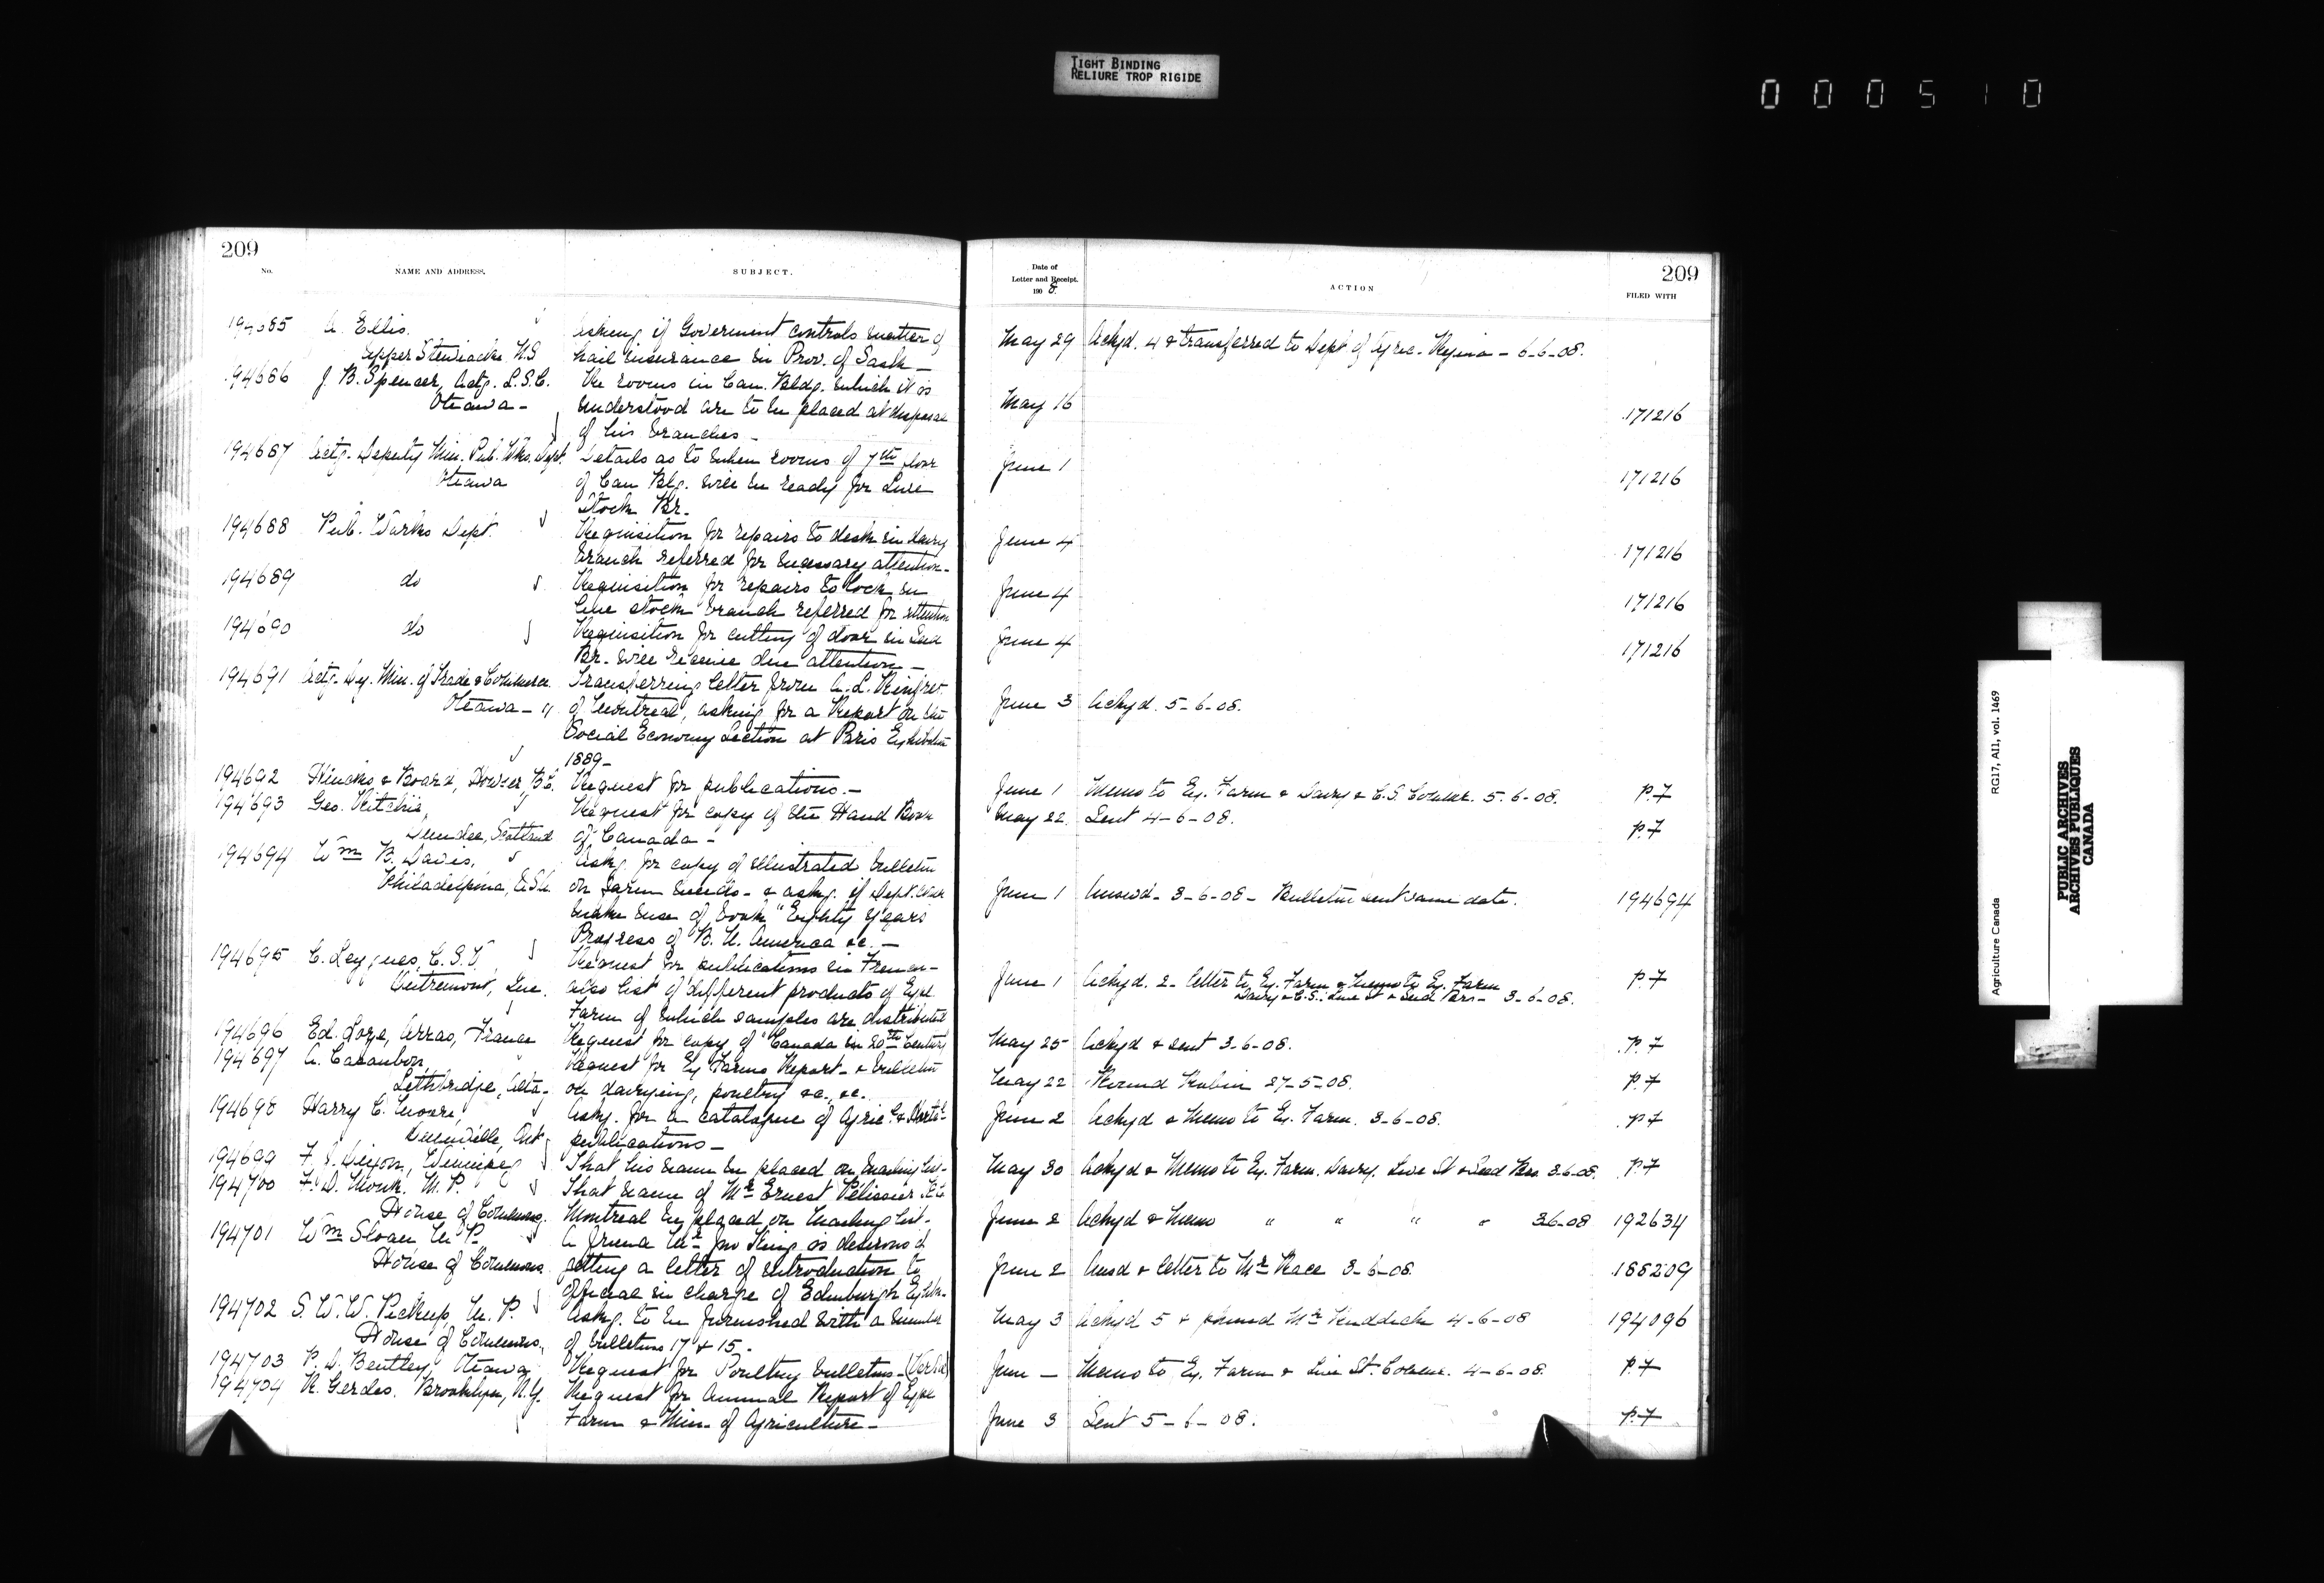 TIGHT BINDING
RELIURE TROP RIGIDE
000510
209
No.
NAME AND ADDRESS.
SUBJECT.
194685 A. Ellis.
Upper Stewiacke N.S
Asking if Goverment controls matter of
hail insurance in Prov. of Sask —
194686 J. B. Spencer, Actg. L.S.C.
Ottawa -
Re rooms in Can. Bldg. which it is
understood are to be placed at disposal
of his branches -
194687 Actg. Deputy Min. Pub. Wks. Dept.
Ottawa
Details as to when rooms of 7th floor
of Can Blg. will be ready for Live
Stock Br.
194688 Pub. Works Dept.
Requisition for repairs to desk in dairy
branch referred for necessary attention -
194689 do
Requisition for repairs to lock in
live stock branch referred for attention
194690 do
Requisition for cutting of door in Seed
Br. will receive due attention —
194691 Actg. Dy. Min. of Trade & Commerce
Ottawa -
Transferring letter from A. L.
of Montreal, asking for a Report on the
Social Economy Section at Paris Exhibition
1889 -
194692 & Board, Howser, B.C.
Request for publications. -
194693 Geo. Ritchie,
Dundee, Scotland
Request for copy of the Hand Book
of Canada -
194694 Wm B. Davis,
Philadelphia, U.S.A.
Askg. for copy of illustrated bulletin
on farm weeds - & askg. if Dept. can
make use of book "Eighty Years
Progress of B. N. America &c. —
194695 C. Leygues, C.S.V.
Outremont, Que.
Request for publications in French -
also list of different products of Expl.
Farm of which samples are distributed
194696 Ed. Loye, Arras, France
Request for copy of "Canada in 20th Century"
194697 A. Casaubon,
Lethbridge, Alta -
Request for Ex Farms Report - & bulletin
on dairying, poultry &c., &c.
194698 Harry C. Moore,
Ont
Askg. for a catalogue of Agric. & Hortl.
publications —
194699 F. Dixon, Winnipeg
That his name be placed on mailing list -
194700 F. D. Monk. M.P.
House of Commons.
That name of Mr Ernest Pélissier
Montreal be placed on mailing list -
194701 Wm Sloan M.P.
House of Commons
A friend Mr Jno King is desirous of
getting a letter of introduction to
official in charge of Edinburgh Exhibn.
194702 S. W. W. Pickup, M.P.
House of Commons,
Askg. to be furnished with a number
of bulletins 17 & 15 -
194703 P. D. Bentley, Ottawa
Request for Poultry bulletins - (Verbal)
194704 R. Gerdes. Brooklyn, N.Y.
Request for Annual Report of Expl
Farm & Min. of Agriculture —
209
Date of
Letter and Receipt.
1908.
ACTION
FILED WITH
May 29 Ackyd. 4 & transferred to Dept. of Agric. Regina - 6-6-08.
May 16 171216
June 1 171216
June 4 171216
June 4 171216
June 4 171216
June 3 Ackyd. 5-6-08.
June 1 Memo to Ex. Farm & Dairy & C.S. Commr. 5-6-08. p.7
May 22. Sent 4-6-08. p.7
June 1 Answd. 3-6-08 - Bulletin sent same date. 194694
June 1 Ackyd. 2 - letter to Ex. Farm & Memo to Ex. Farm
Dairy & C.S. Live St & Seed Brs - 3-6-08. p.7
May 25 Ackyd & sent 3-6-08. p.7
May 22 27-5-08. p.7
June 2 Ackyd & Memo to Ex. Farm. 3-6-08. p.7
May 30 Ackyd & Memo to Ex. Farm. Dairy, Live St & Seed Brs 3-6-08. p.7
June 2 Ackyd & Memo " " " " 3-6-08 192634
June 2 Ansd & letter to Mr Race 3-6-08. 188209
May 3 Ackyd 5 & phoned Mr Ruddick 4-6-08 194096
June — Memo to Ex. Farm & Live St. Commr. 4-6-08. p.7
June 3 Sent 5-6-08. p.7
Agriculture Canada
RG17, AII, vol. 1469
PUBLIC ARCHIVES
ARCHIVES PUBLIQUES
CANADA